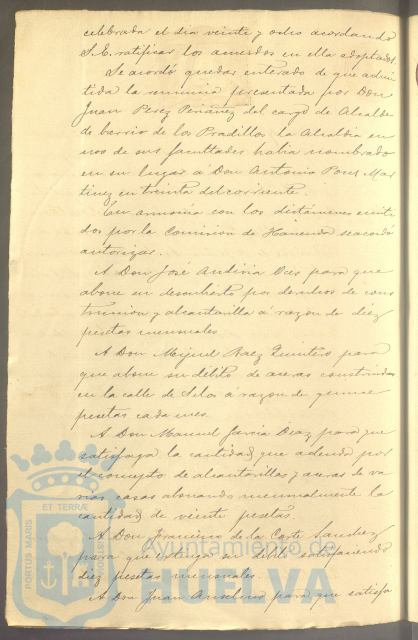 celebrada el dia veinte y ocho acordando
S. E. ratificar los acuerdos en ella adoptados.
Se acordó quedar enterado de que admi-
tida la renuncia presentada por Don
Juan Perez Peñañez del cargo de Alcalde
de barrio de los Pradillos la Alcaldia en
uso de sus facultades habia nombrado
en su lugar á Don Antonio Ponce Mar-
tinez en treinta del corriente.
En armonía con los dictámenes emiti-
dos por la Comision de Hacienda se acordó
autorizar.
A Don José para que
abone su descubierto por derechos de cons-
truccion y alcantarilla á razon de diez
pesetas mensuales
A Don Miguel Baez Quintero para
que abone su débito de aceras construidas
en la calle de Silos á razon de quince
pesetas cada mes.
A Don Manuel Garcia Diaz para que
satisfaga la cantidad que adeuda por
el concepto de alcantarillas y aceras de va-
rias casas abonando mensualmente la
cantidad de veinte pesetas
A Don Francisco de la Corte Sanchez
para que satisfaciendo
diez pesetas mensuales.
A Don Juan Anselmo para que satisfa
PORTUS MARIS
ET TERRÆ
CUSTODIA
Ayuntamiento de
HUELVA